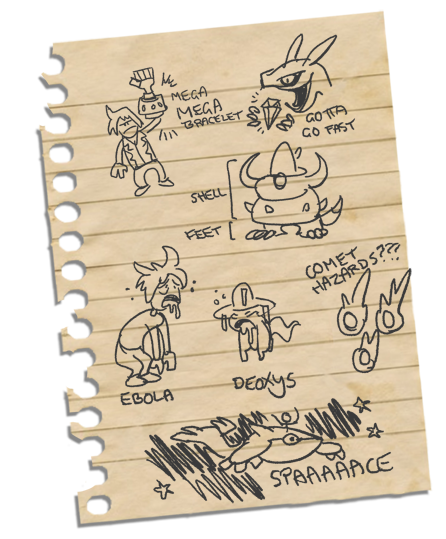 MEGA
MEGA
BRACELET
GOTTA
GO FAST
SHELL
?
FEET
COMET
HAZARDS???
EBOLA
DEOXYS
SPAAAAACE